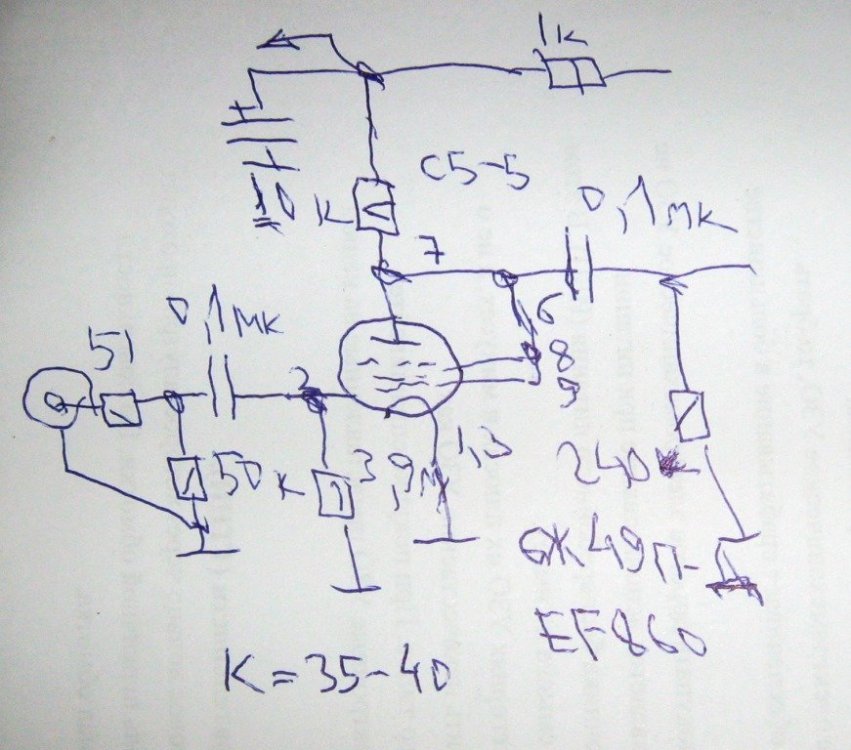 1к
+
С5-5
10к
7
0,1мк
6
8
9
0,1мк
51
2
50к
3,9м
1,3
240к
6Ж49П-Д
EF860
К=35-40